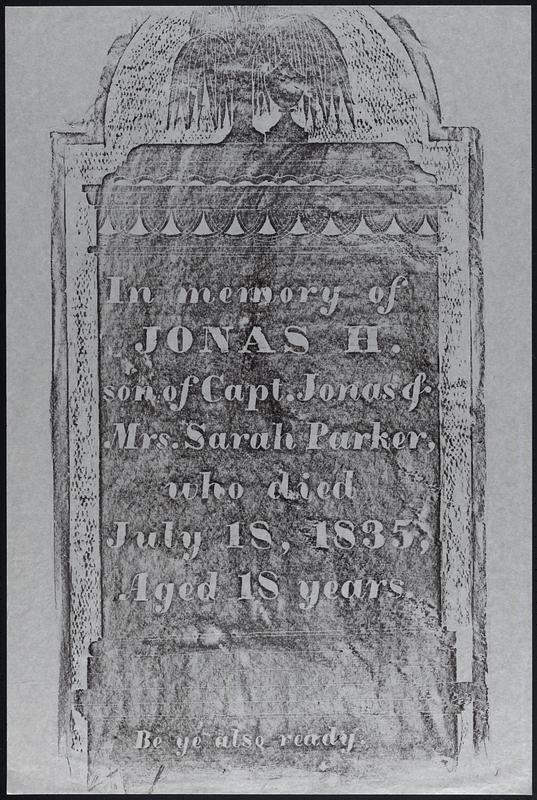 In memory of
JONAS H.
son of Capt. Jonas &
Mrs. Sarah Parker,
who died
July 18, 1835,
Aged 18 years.
Be ye also ready